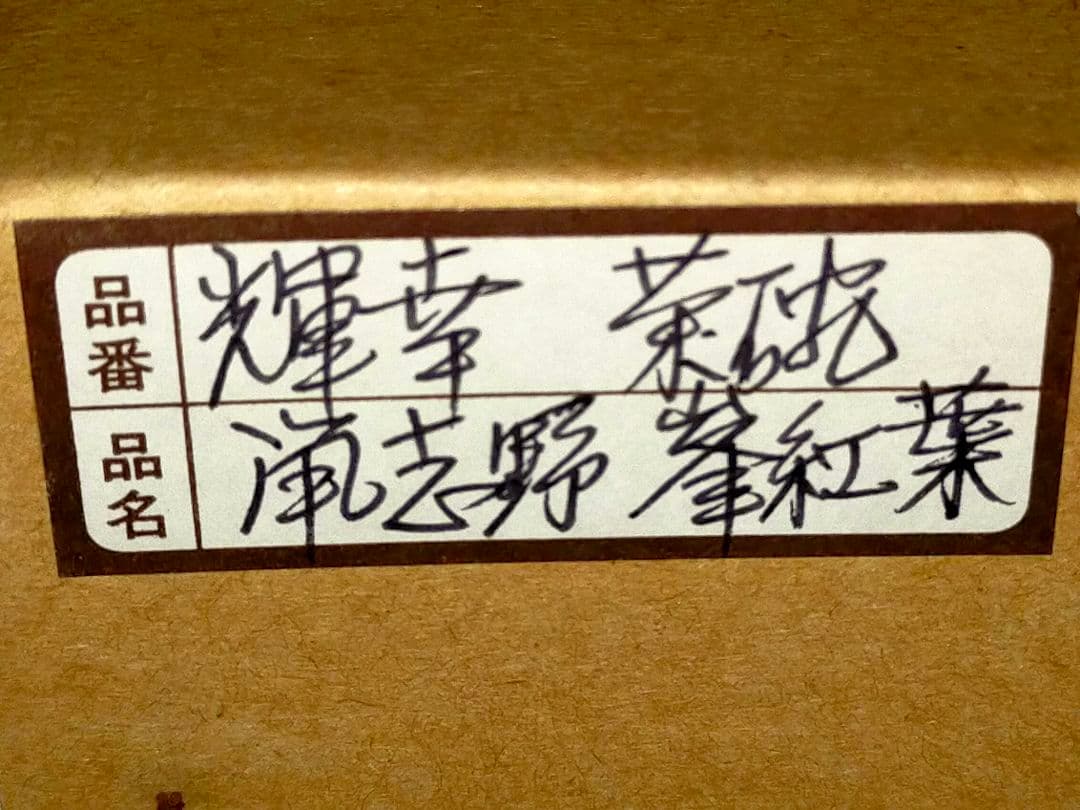 品番 輝幸 茶碗
品名 鼠志野 峯紅葉